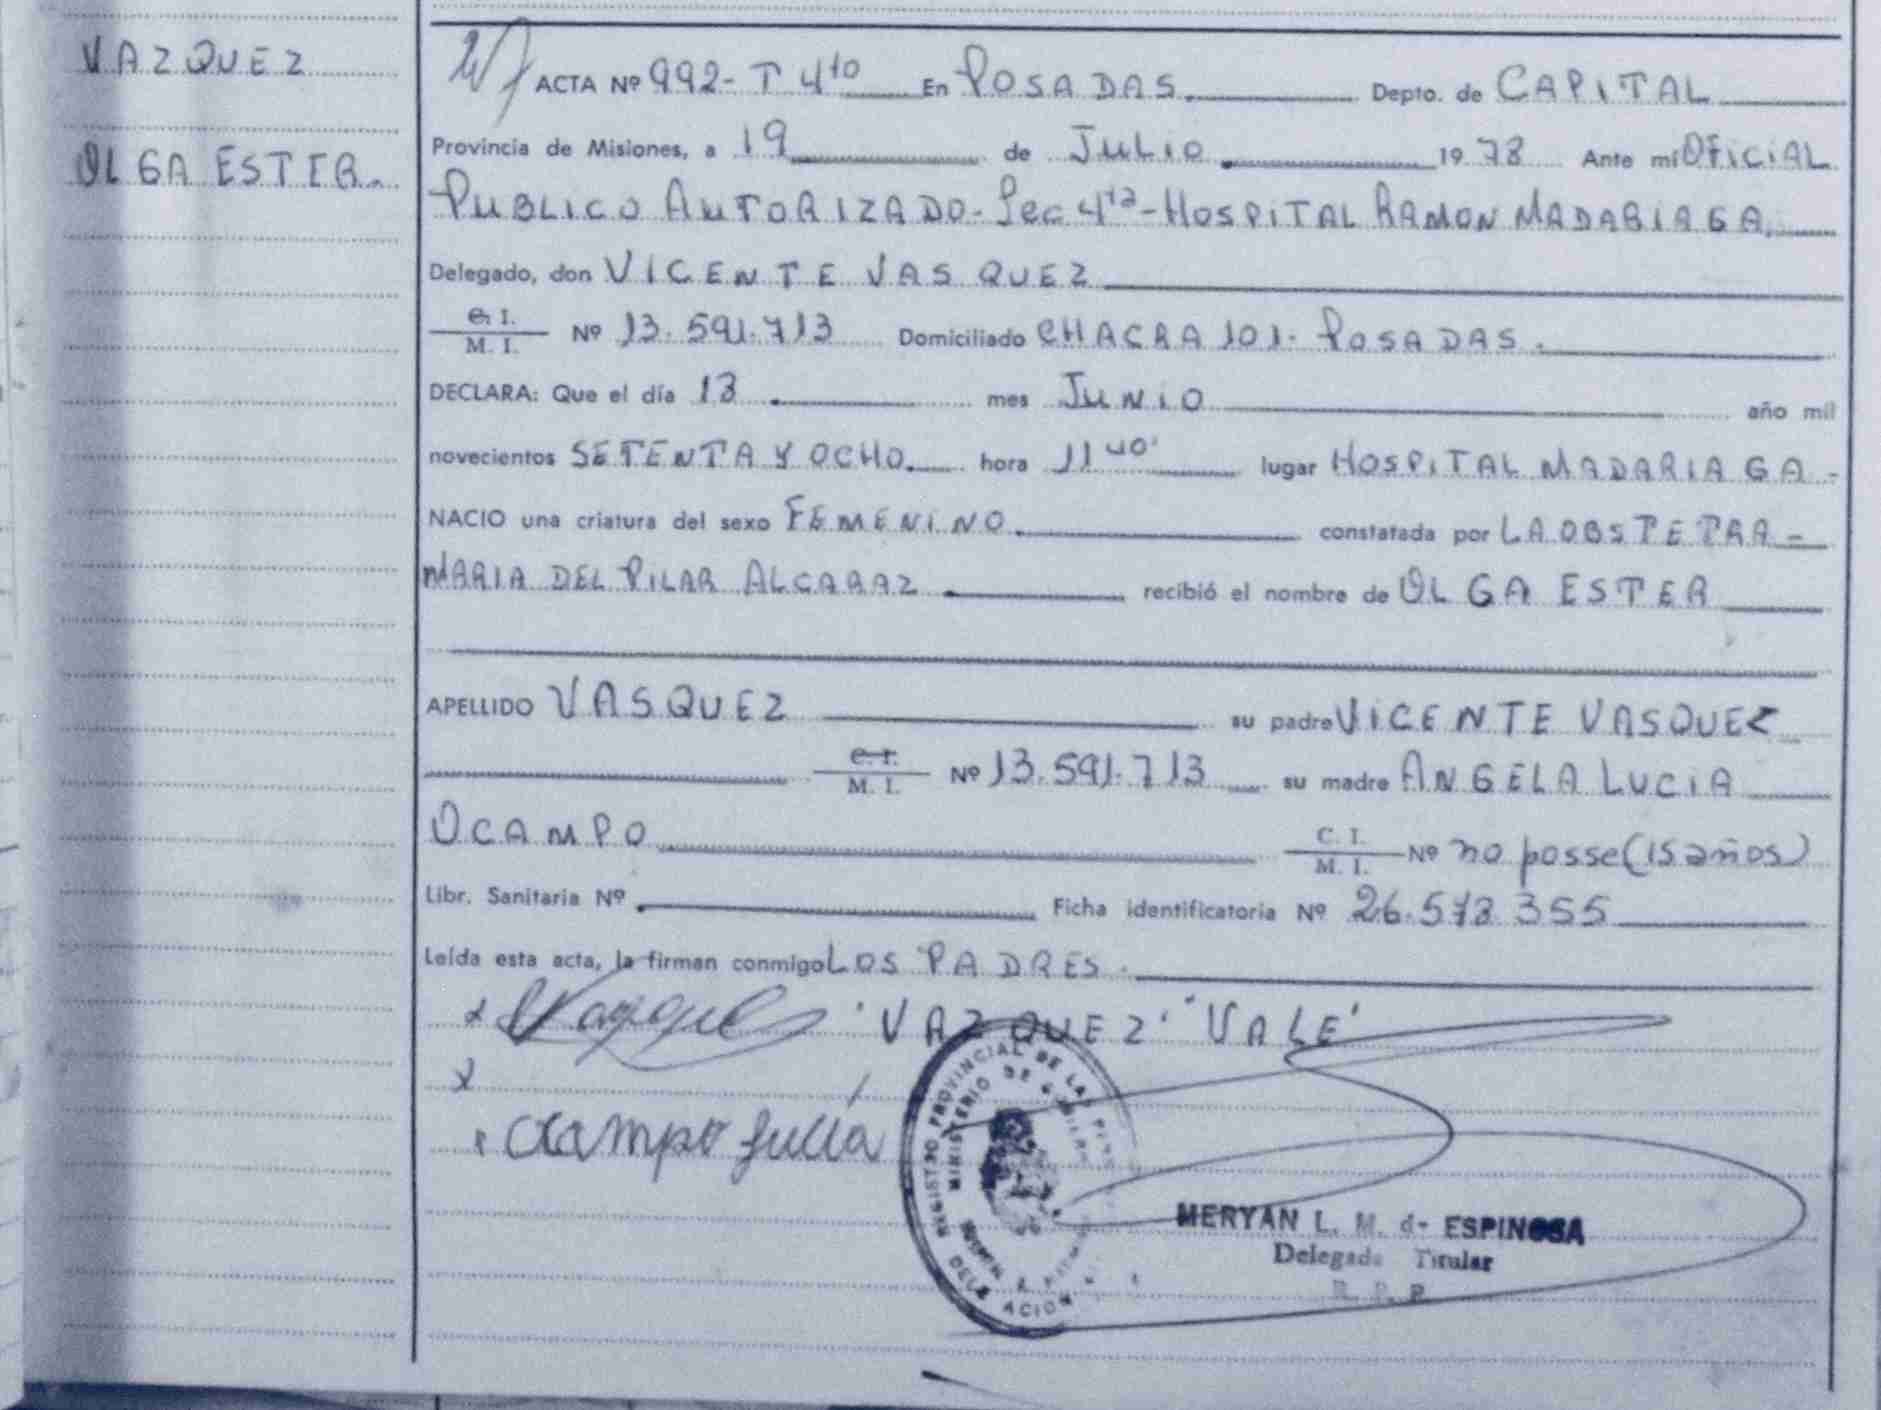 VAZQUEZ
OLGA ESTER.
ACTA Nº 992- T 4to En POSADAS. Depto. de CAPITAL
Provincia de Misiones, a 19 de JULIO. 1978 Ante mi OFICIAL
PUBLICO AUTORIZADO- Sec 4ta - HOSPITAL RAMON MADARIAGA.
Delegado, don VICENTE VASQUEZ
C. I.
M. I. Nº 13.591.713 Domiciliado CHACRA 101- POSADAS.
DECLARA: Que el día 13 mes JUNIO año mil
novecientos SETENTA Y OCHO. hora 11 40' lugar HOSPITAL MADARIAGA -
NACIO una criatura del sexo FEMENINO. constatada por LA OBSTETRA -
MARIA DEL PILAR ALCARAZ. recibió el nombre de OLGA ESTER
APELLIDO VASQUEZ su padre VICENTE VASQUEZ
C. I.
M. I. Nº 13.591.713 su madre ANGELA LUCIA
OCAMPO C. I.
M. I. Nº no posse (15 años)
Libr. Sanitaria Nº Ficha identificatoria Nº 26.573.355
Leída esta acta, la firman conmigo LOS PADRES.
x Vazquez 'VAZQUEZ' 'VALE'
x
x Ocampo Lucía
REGISTRO PROVINCIAL DE LAS
MINISTERIO DE GOBIERNO
DELEGACION
MERYAN L. M. de ESPINOSA
Delegada Titular
R. P. P.